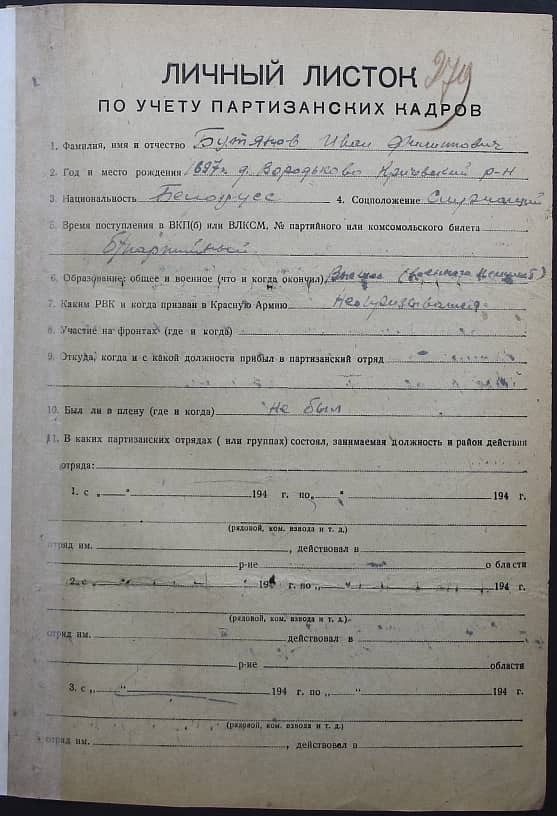 279
ЛИЧНЫЙ ЛИСТОК
ПО УЧЕТУ ПАРТИЗАНСКИХ КАДРОВ
1. Фамилия, имя и отчество Бутяков Иван Филиппович
2. Год и место рождения 1897 г. д. Вородьково Кричевский р-н
3. Национальность Белорусс 4. Соцположение Служащий
5. Время поступления в ВКП(б) или ВЛКСМ, № партийного или комсомольского билета
б/партийный
6. Образование: общее и военное (что и когда окончил) Высшее
7. Каким РВК и когда призван в Красную Армию Не призывался
8. Участие на фронтах (где и когда)
9. Откуда, когда и с какой должности прибыл в партизанский отряд
10. Был ли в плену (где и когда) не был
11. В каких партизанских отрядах ( или группах) состоял, занимаемая должность и район действия
отряда:
1. с „ " 194 г. по „ " 194 г.
(рядовой, ком. взвода и т. д.)
отряд им. , действовал в
р-не области
2. с „ " 194 г. по „ " 194 г.
(рядовой, ком. взвода и т. д.)
отряд им. действовал в
р-не области
3. с „ " 194 г. по „ " 194 г.
(рядовой, ком. взвода и т. д.)
отряд им. , действовал в